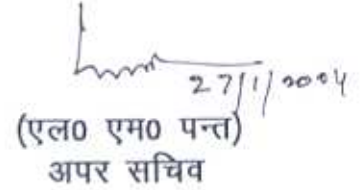 27/1/2004
(एल0 एम0 पन्त)
अपर सचिव